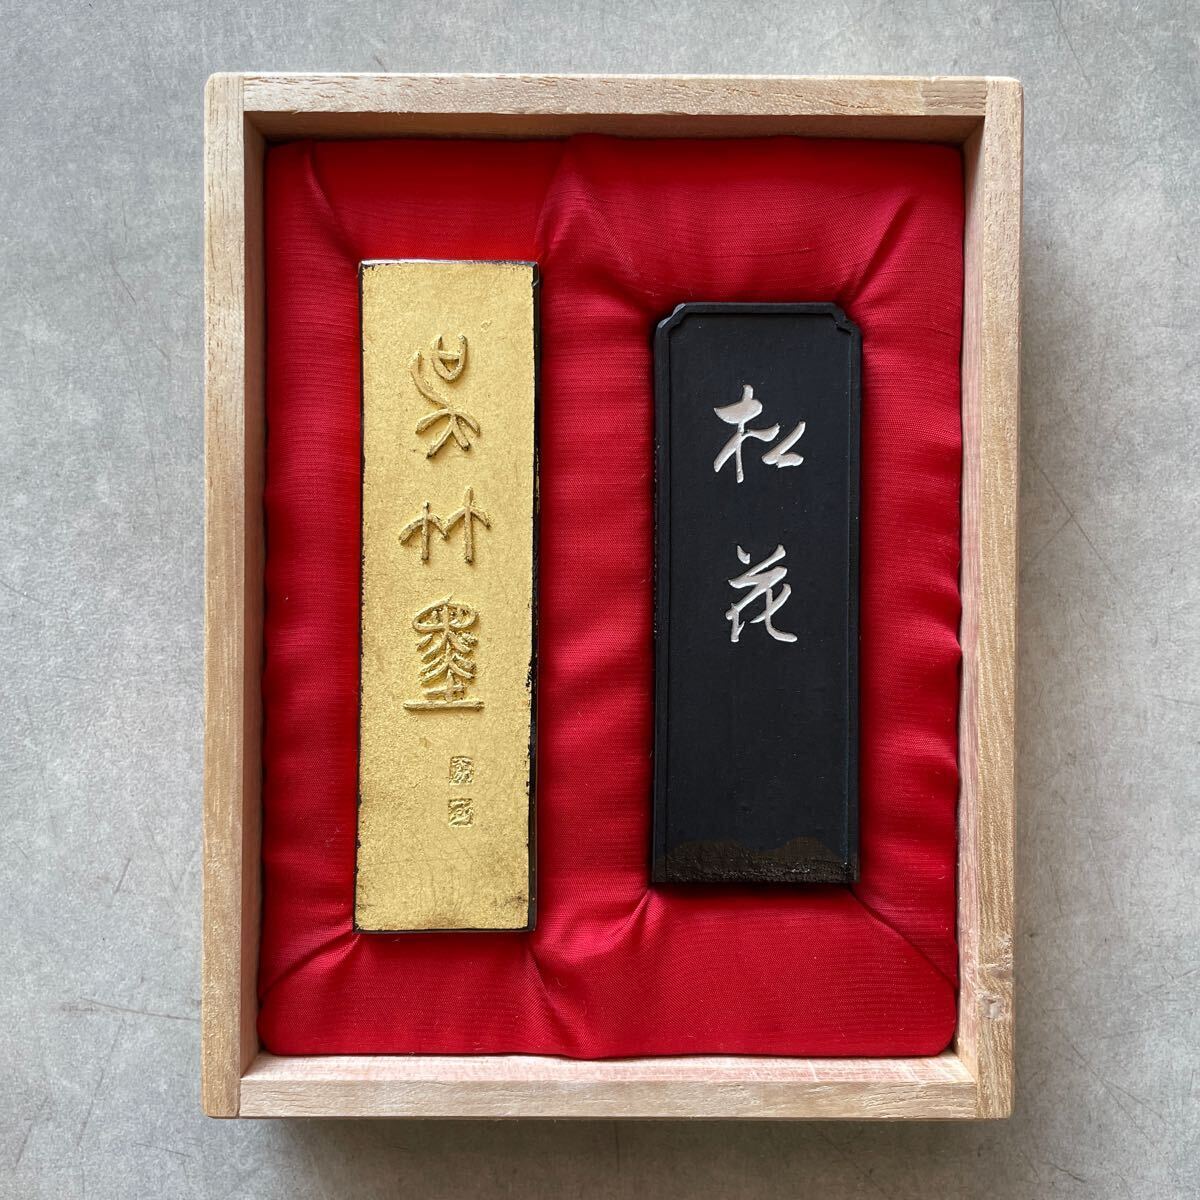 呉竹墨
松花